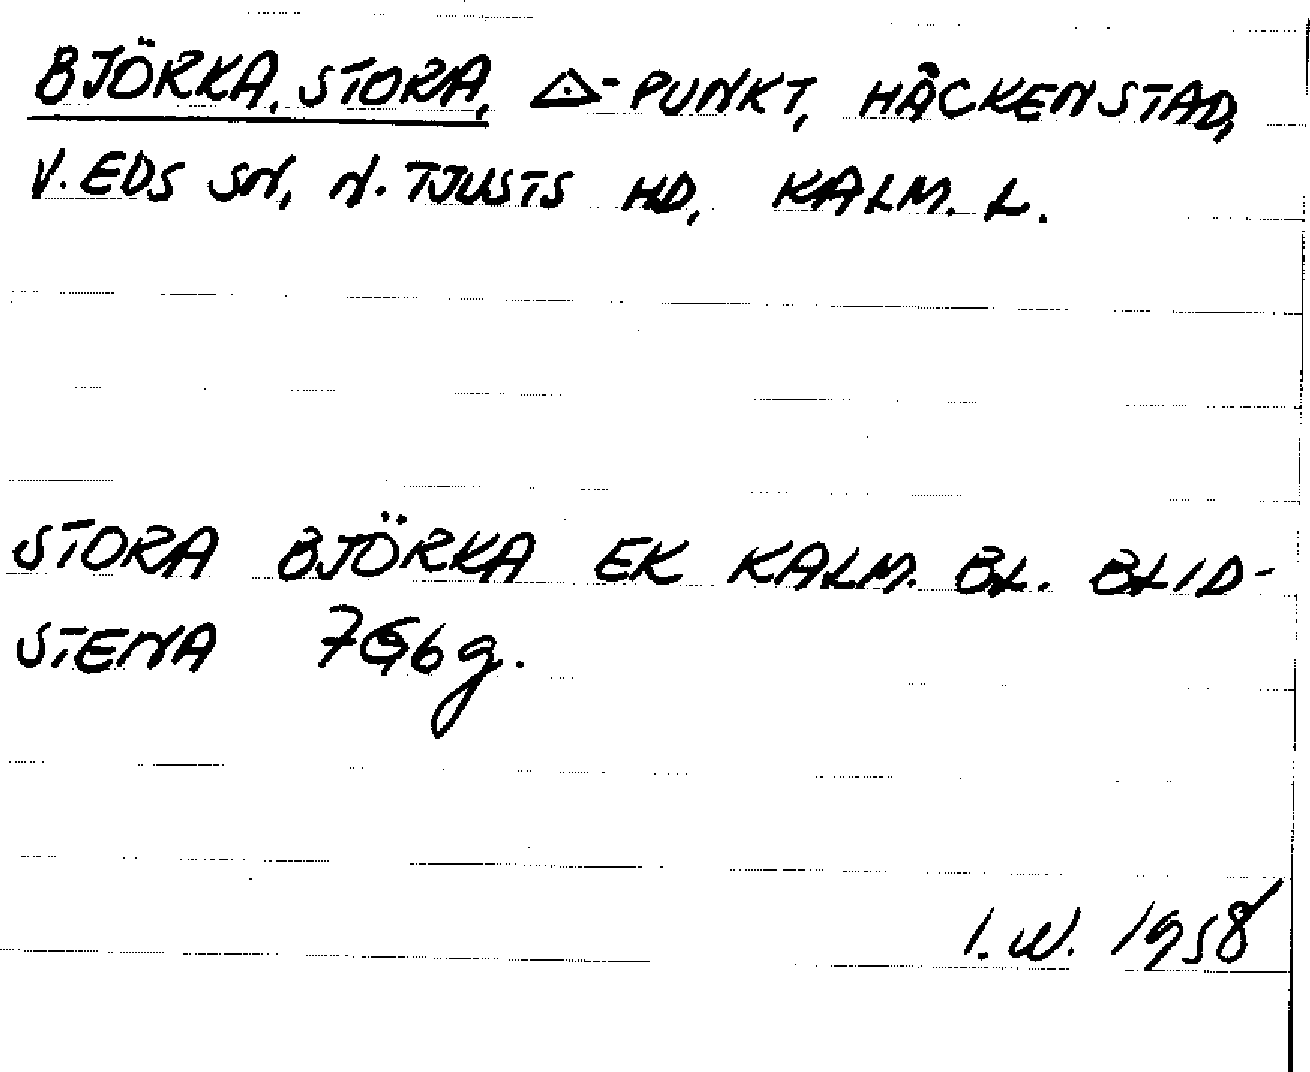 BJÖRKA, STORA, △-PUNKT, HÄCKENSTAD,
V. EDS SN, N. TJUSTS HD, KALM. L.
STORA BJÖRKA EK KALM. BL. BLID-
STENA 7G6g.
I.W. 1958